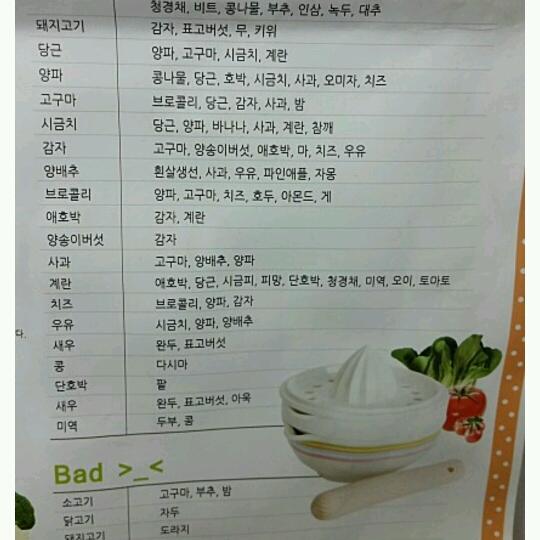 청경채, 비트, 콩나물, 부추, 인삼, 녹두, 대추
돼지고기 감자, 표고버섯, 무, 키위
당근 양파, 고구마, 시금치, 계란
양파 콩나물, 당근, 호박, 시금치, 사과, 오미자, 치즈
고구마 브로콜리, 당근, 감자, 사과, 밤
시금치 당근, 양파, 바나나, 사과, 계란, 참깨
감자 고구마, 양송이버섯, 애호박, 마, 치즈, 우유
양배추 흰살생선, 사과, 우유, 파인애플, 자몽
브로콜리 양파, 고구마, 치즈, 호두, 아몬드, 게
애호박 감자, 계란
양송이버섯 감자
사과 고구마, 양배추, 양파
계란 애호박, 당근, 시금피, 피망, 단호박, 청경채, 미역, 오이, 토마토
치즈 브로콜리, 양파, 감자
우유 시금치, 양파, 양배추
다.
새우 완두, 표고버섯
콩 다시마
단호박 팥
새우 완두, 표고버섯, 아욱
미역 두부, 콩
Bad >_<
소고기 고구마, 부추, 밤
닭고기 자두
돼지고기 도라지